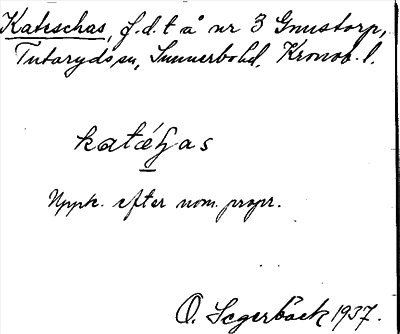 Kateschas, f.d.t å nr 3 Gnustorp,
Tutaryds sn, Sunnerbo hd, Kronob. l.
katä́ɧas
Uppk. efter nom. propr.
O. Segerbäck 1937.